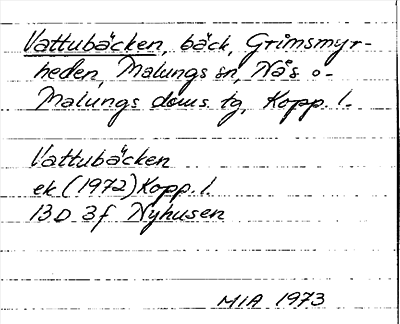 Vattubäcken, bäck, Grimsmyr-
heden, Malungs sn, Nås o-
Malungs doms. tg, Kopp. l.
Vattubäcken
ek (1972) Kopp. l.
13D 3f Nyhusen
MIA 1973